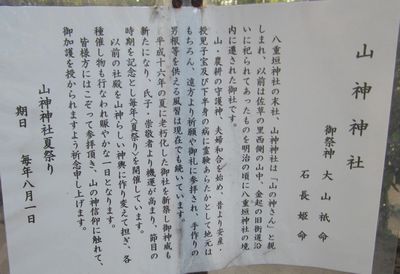 山神神社
御祭神 大山祇命
石長姫命
八重垣神社の末社、山神神社は「山の神さん」と親
しまれ、以前は佐草の里西側の山中、金起の旧街道沿
いに祀られてあったものを明治の頃に八重垣神社の境
内に遷された御社です。
山・農耕の守護神、夫婦和合を始め、昔より安産・
授児子宝及び下半身の病に霊験あらたかとして地元は
もちろん、遠方より祈願や御礼に参拝され、手作りの
男根等を供える風習は現在でも続いています。
平成十六年の夏に老朽化した御社を新築し御神威も
新たになり、氏子・崇敬者より機運が高まり、節目の
時期を記念とし毎年〈夏祭り〉を開催しています。
以前の社殿を山神らしい神輿に作り変えて担ぎ、各
種催し物も行なわれ賑やかな一日となります。
皆様方にはこぞって参拝頂き、山の神信仰に触れて、
御加護を授かられますよう祈念申し上げます。
山神神社夏祭り
期日 毎年八月一日